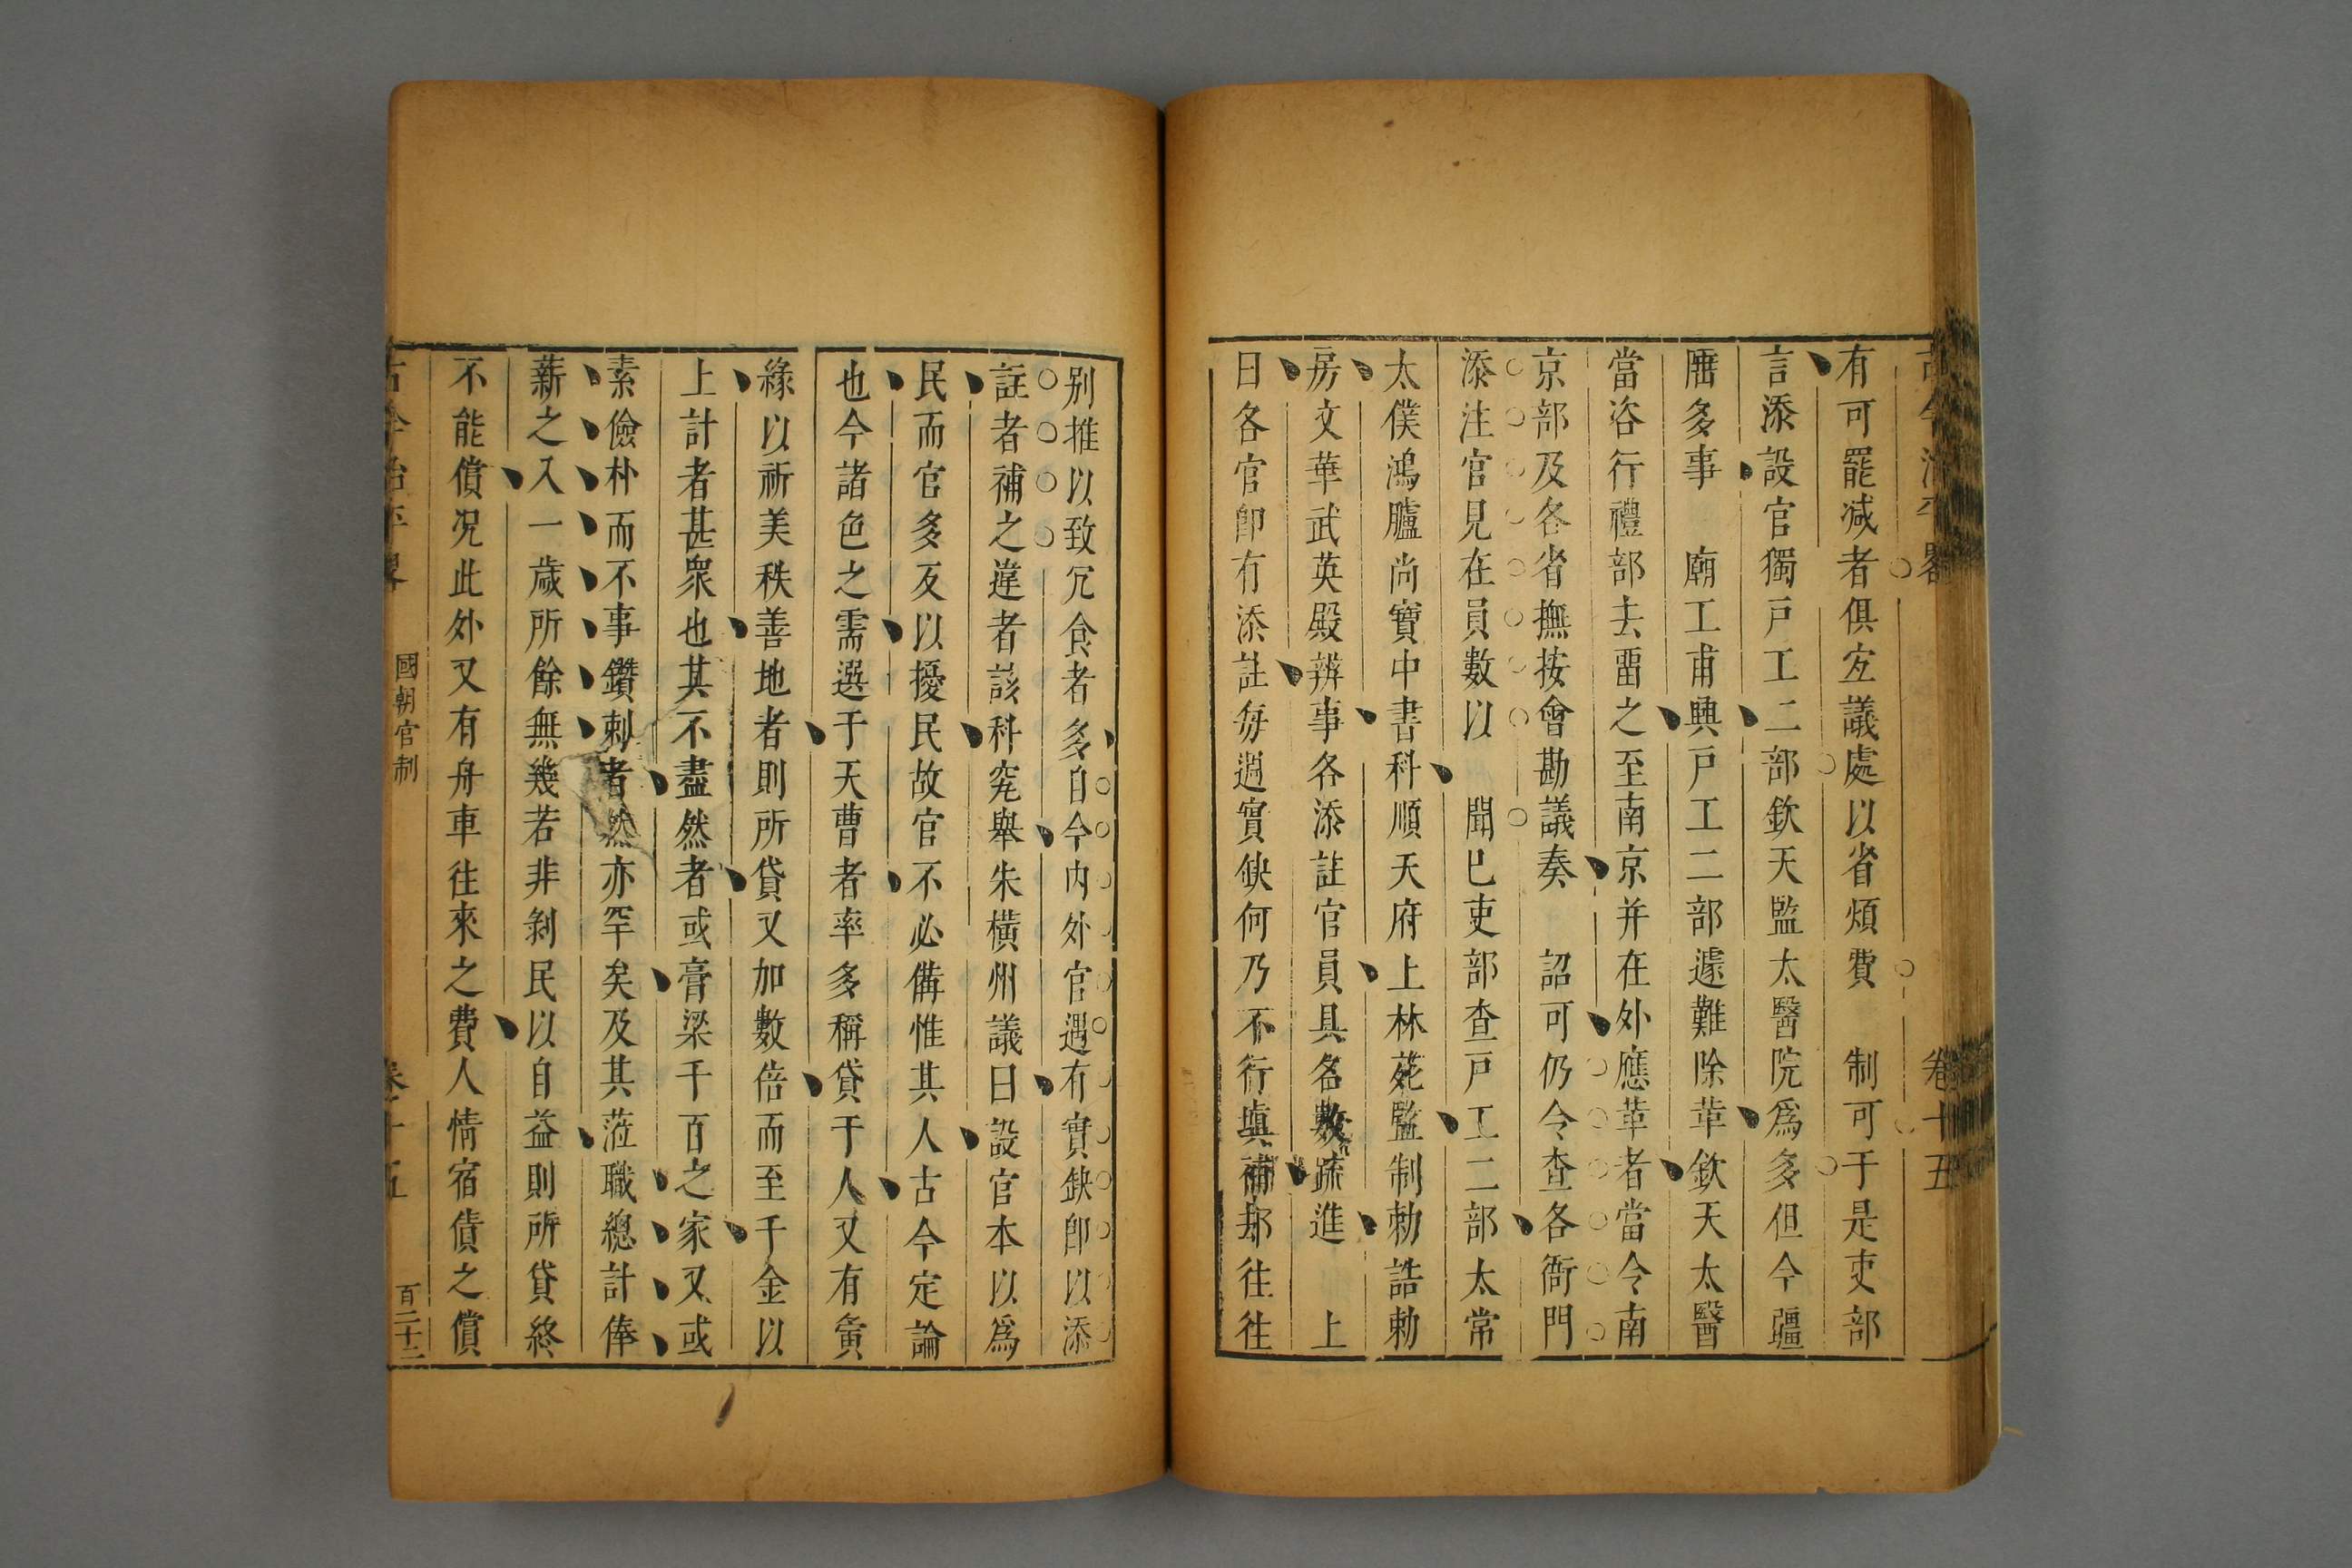 古今治平畧 卷十五
有可罷減者俱宐議處以省煩費 制可于是吏部
言添設官獨戸工二部欽天監太醫院爲多但今疆
厝多事 廟工甫興戸工二部遽難除革欽天太醫
當咨行禮部去畱之至南京并在外應革者當令南
京部及各省撫按會勘議奏 詔可仍令查各衙門
添注官見在員數以 聞巳吏部查戸工二部太常
太僕鴻臚尚寶中書科順天府上林苑監制勅誥勅
房文華武英殿辨事各添註官員具名數疏進 上
曰各官卽有添註每遇實缺何乃不行塡補却往往
别推以致冗食者多自今内外官遇有實缺卽以添
註者補之違者該科究舉朱橫州議曰設官本以爲
民而官多反以擾民故官不必備惟其人古今定論
也今諸色之需選于天曹者率多稱貸于人又有夤
緣以祈美秩善地者則所貸又加數倍而至千金以
上計者甚衆也其不盡然者或膏梁千百之家又或
素儉朴而不事鑽刺者然亦罕矣及其蒞職總計俸
薪之入一歲所餘無幾若非剝民以自益則所貸終
不能償况此外又有舟車往來之費人情宿債之償
古今治平畧 國朝官制 卷十五 百二十二